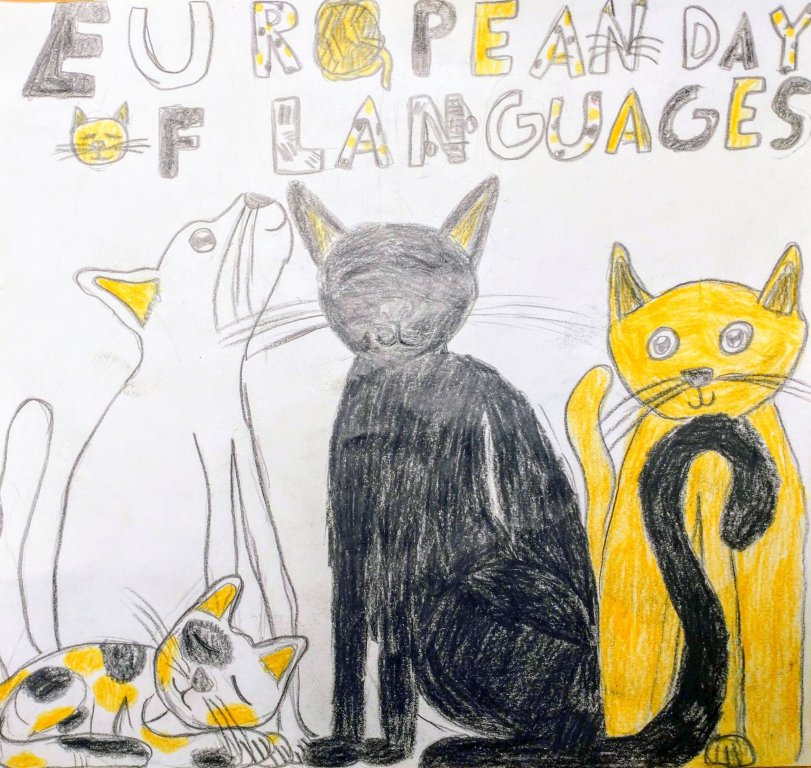 EUROPEAN DAY
OF LANGUAGES